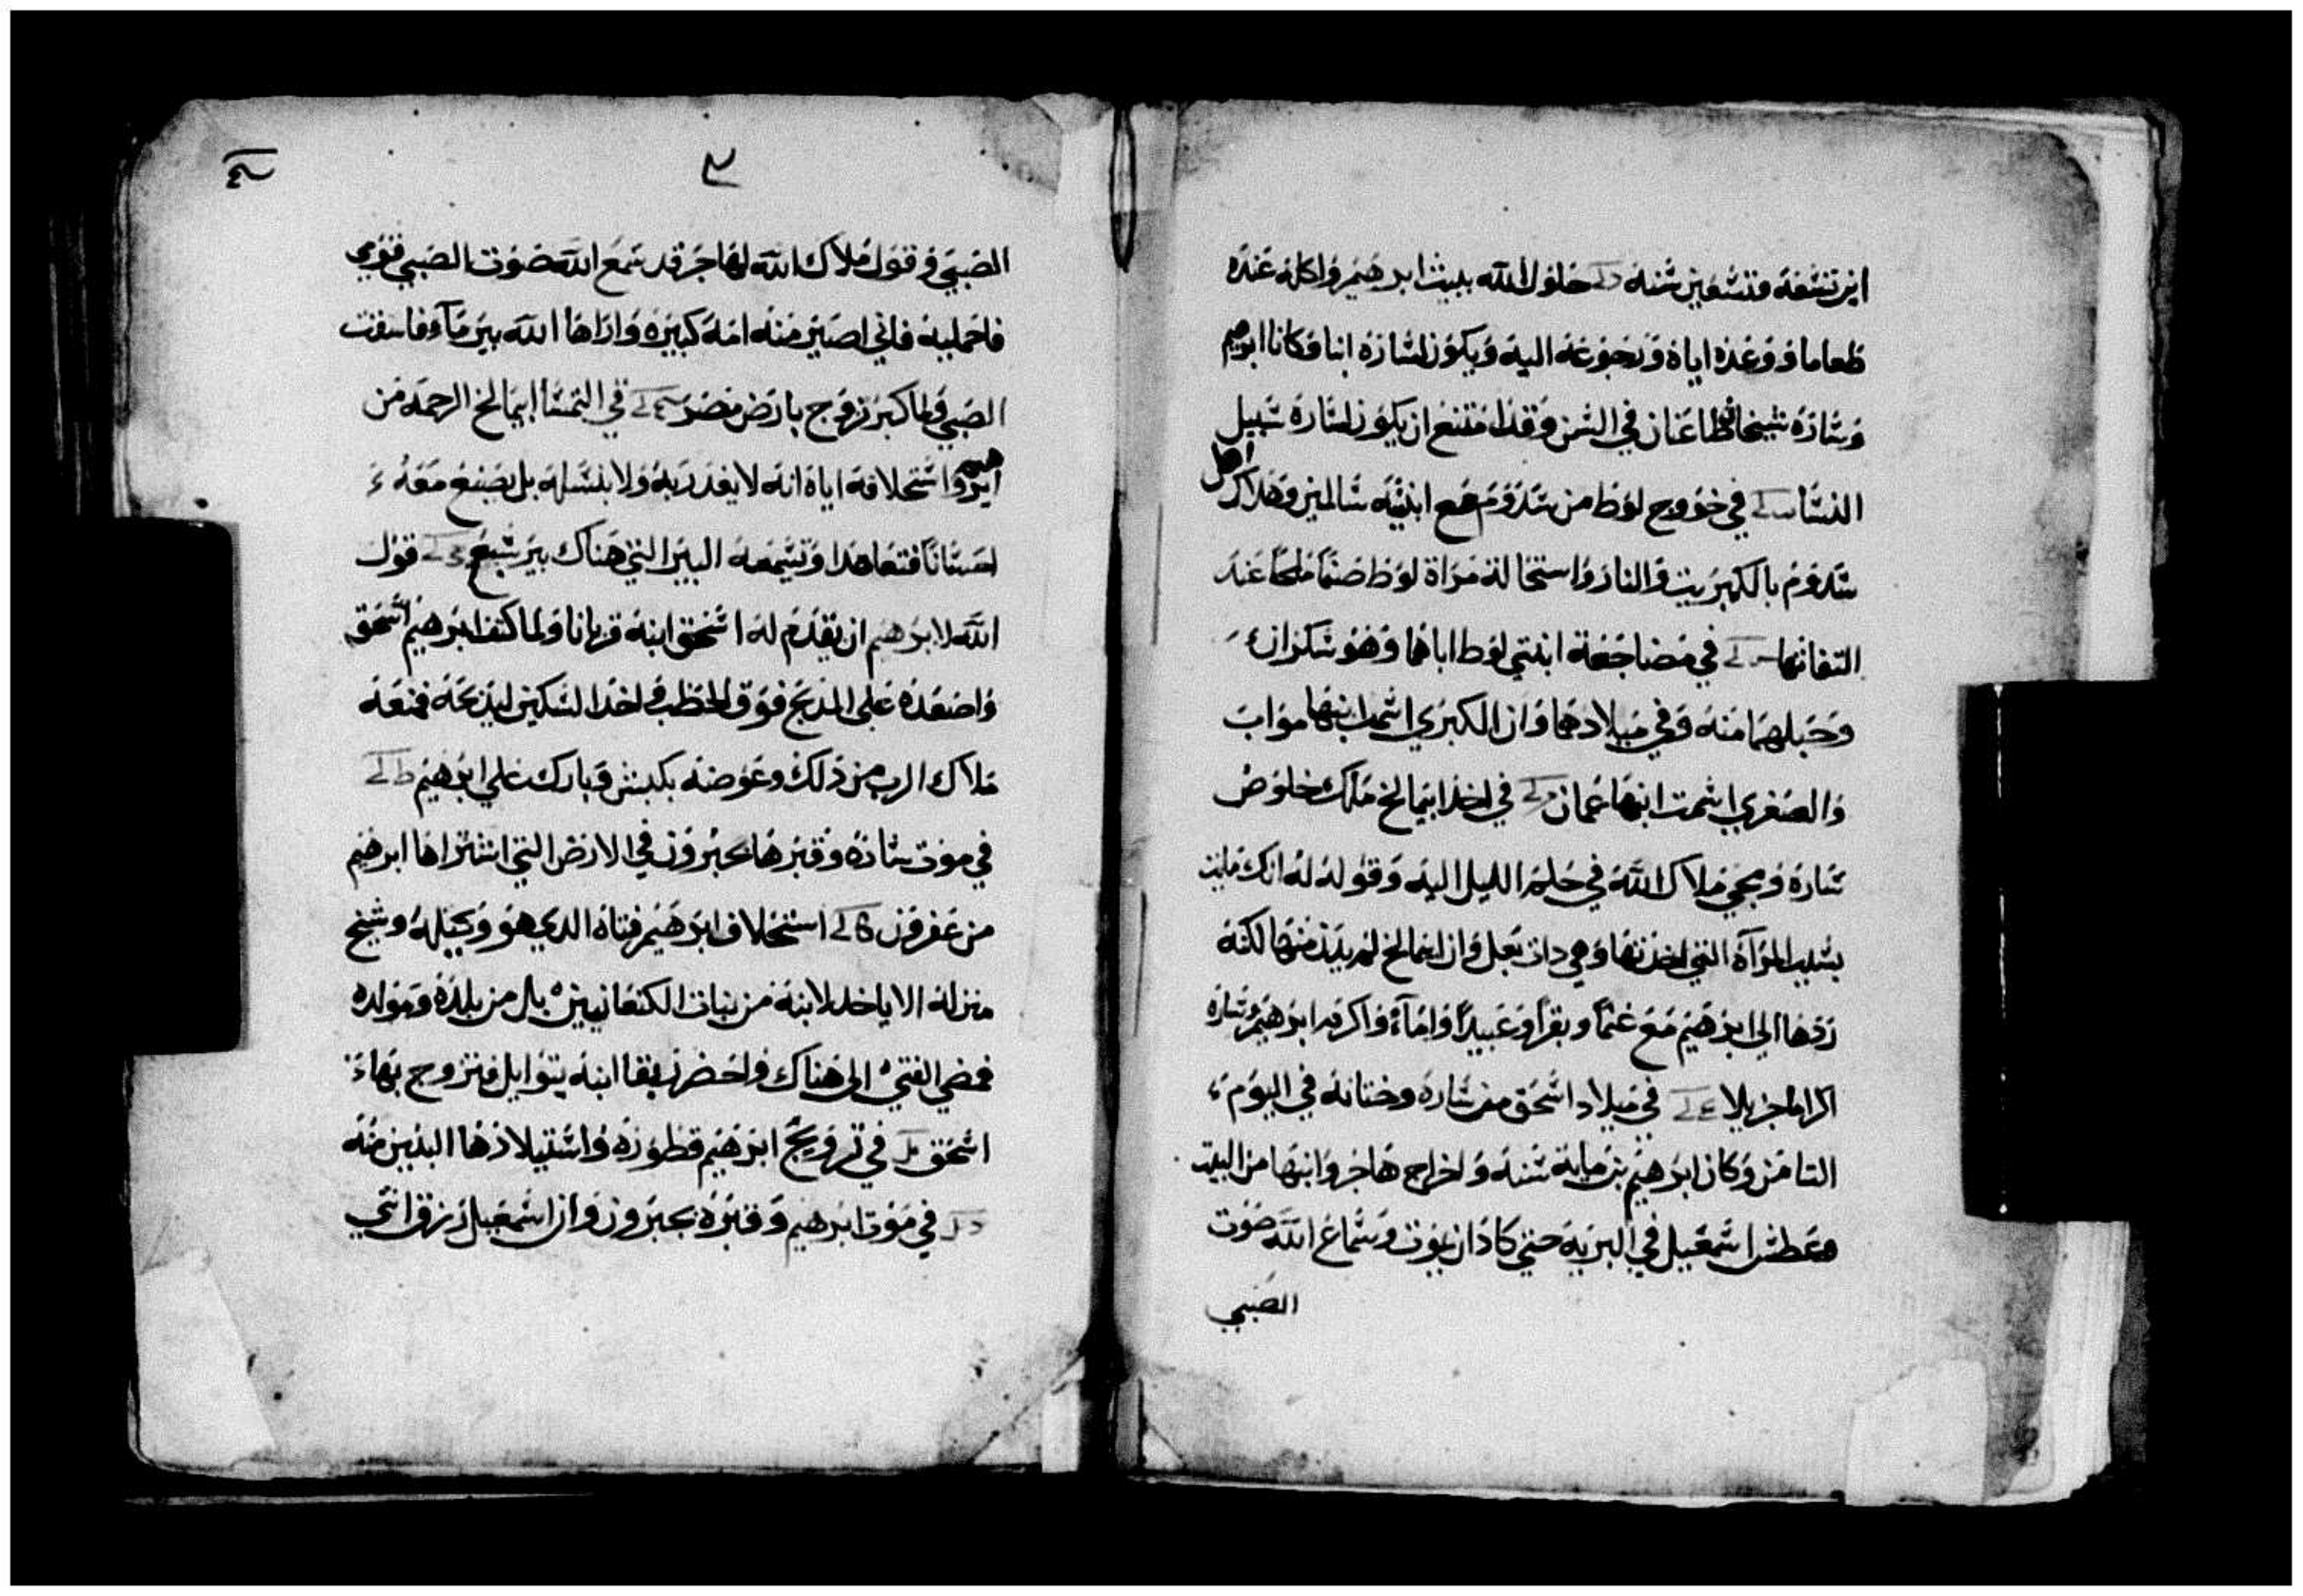 ابن تسعة وتسعين سنة حلول الله ببيت ابرهيم واكله عنده
طعاما ووعده اياه ورجوعه اليه ويكون لسارة ابنا وكانا ابرهيم
وسارة شيخان طاعنان في السن وقد امتنع ان يكون لسارة سبيل
النسا في خروج لوط من سدوم مع ابنتيه سالمين وهلاك اهل
سدوم بالكبريت والنار واستحالة مراة لوط صنما ملحا عند
التفاتها في مضاجعة ابنتي لوط اباهما وهو سكران
وحبلهما منه وفي ميلادهما وان الكبري اسمت ابنها مواب
والصغري اسمت ابنها عمان في اخذ ابيمالخ ملك خلوص
سارة ومجي ملاك الله في حلم الليل اليه وقوله له انك مايت
بسبب المراة التي اخذتها وهي دات بعل وان ابيمالخ لم يدن منها لكنه
ردها الي ابرهيم مع غنما وبقرا وعبيدا واماء واكرم ابرهيم وسارة
اكراما جزيلا في ميلاد اسحق من سارة وختانه في اليوم
التامن وكان ابرهيم بن ماية سنة واخراج هاجر وابنها من البيت
وعطش اسمعيل في البرية حتي كاد ان يموت وسماع الله صوت
الصبي
٣
الصبي وقول ملاك الله لهاجر قد سمع الله صوت الصبي قومي
فاحمليه فاني اصير منه امة كبيرة واراها الله بير ماء فاسقت
الصبي ولما كبر تزوج بارض مصر في التماس ابيمالخ الرحمة من
ابرهيم واستحلافه اياه انه لا يغدر به ولا بنسله بل يصنع معه
احسانا فتعاهدا وتسمعه البير التي هناك بير سبع قول
الله لابرهيم ان يقدم له اسحق ابنه قربانا ولما كتف ابرهيم اسحق
واصعده علي المدبح فوق الحطب واخد السكين ليدبحه فمنعه
ملاك الرب من دلك وعوضه بكبش وبارك علي ابرهيم
في موت سارة وقبرها بحبرون في الارض التي اشتراها ابرهيم
من عفرون استحلاف ابرهيم فتاه الدي هو وكيله وشيخ
منزله الا ياخد لابنه من بنات الكنعانيين بل من بلده ومولده
فمضي الفتي الي هناك واحضر ربقا ابنه بتوايل فتزوج بها
اسحق في تزويج ابرهيم قطورة واستيلادها البنين منه
في موت ابرهيم وقبره بحبرون وان اسمعيل رزق اتني